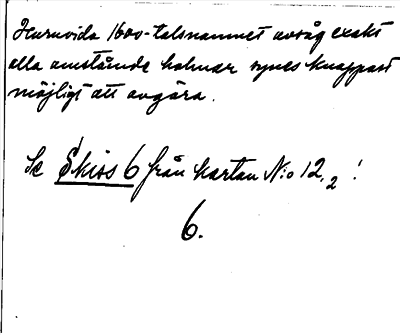 Huruvida 1600-talsnamnet avsåg exakt
alla omstående holmar synes knappast
möjligt att avgöra.
Se Skiss 6 från kartan N:o 12,2!
6.